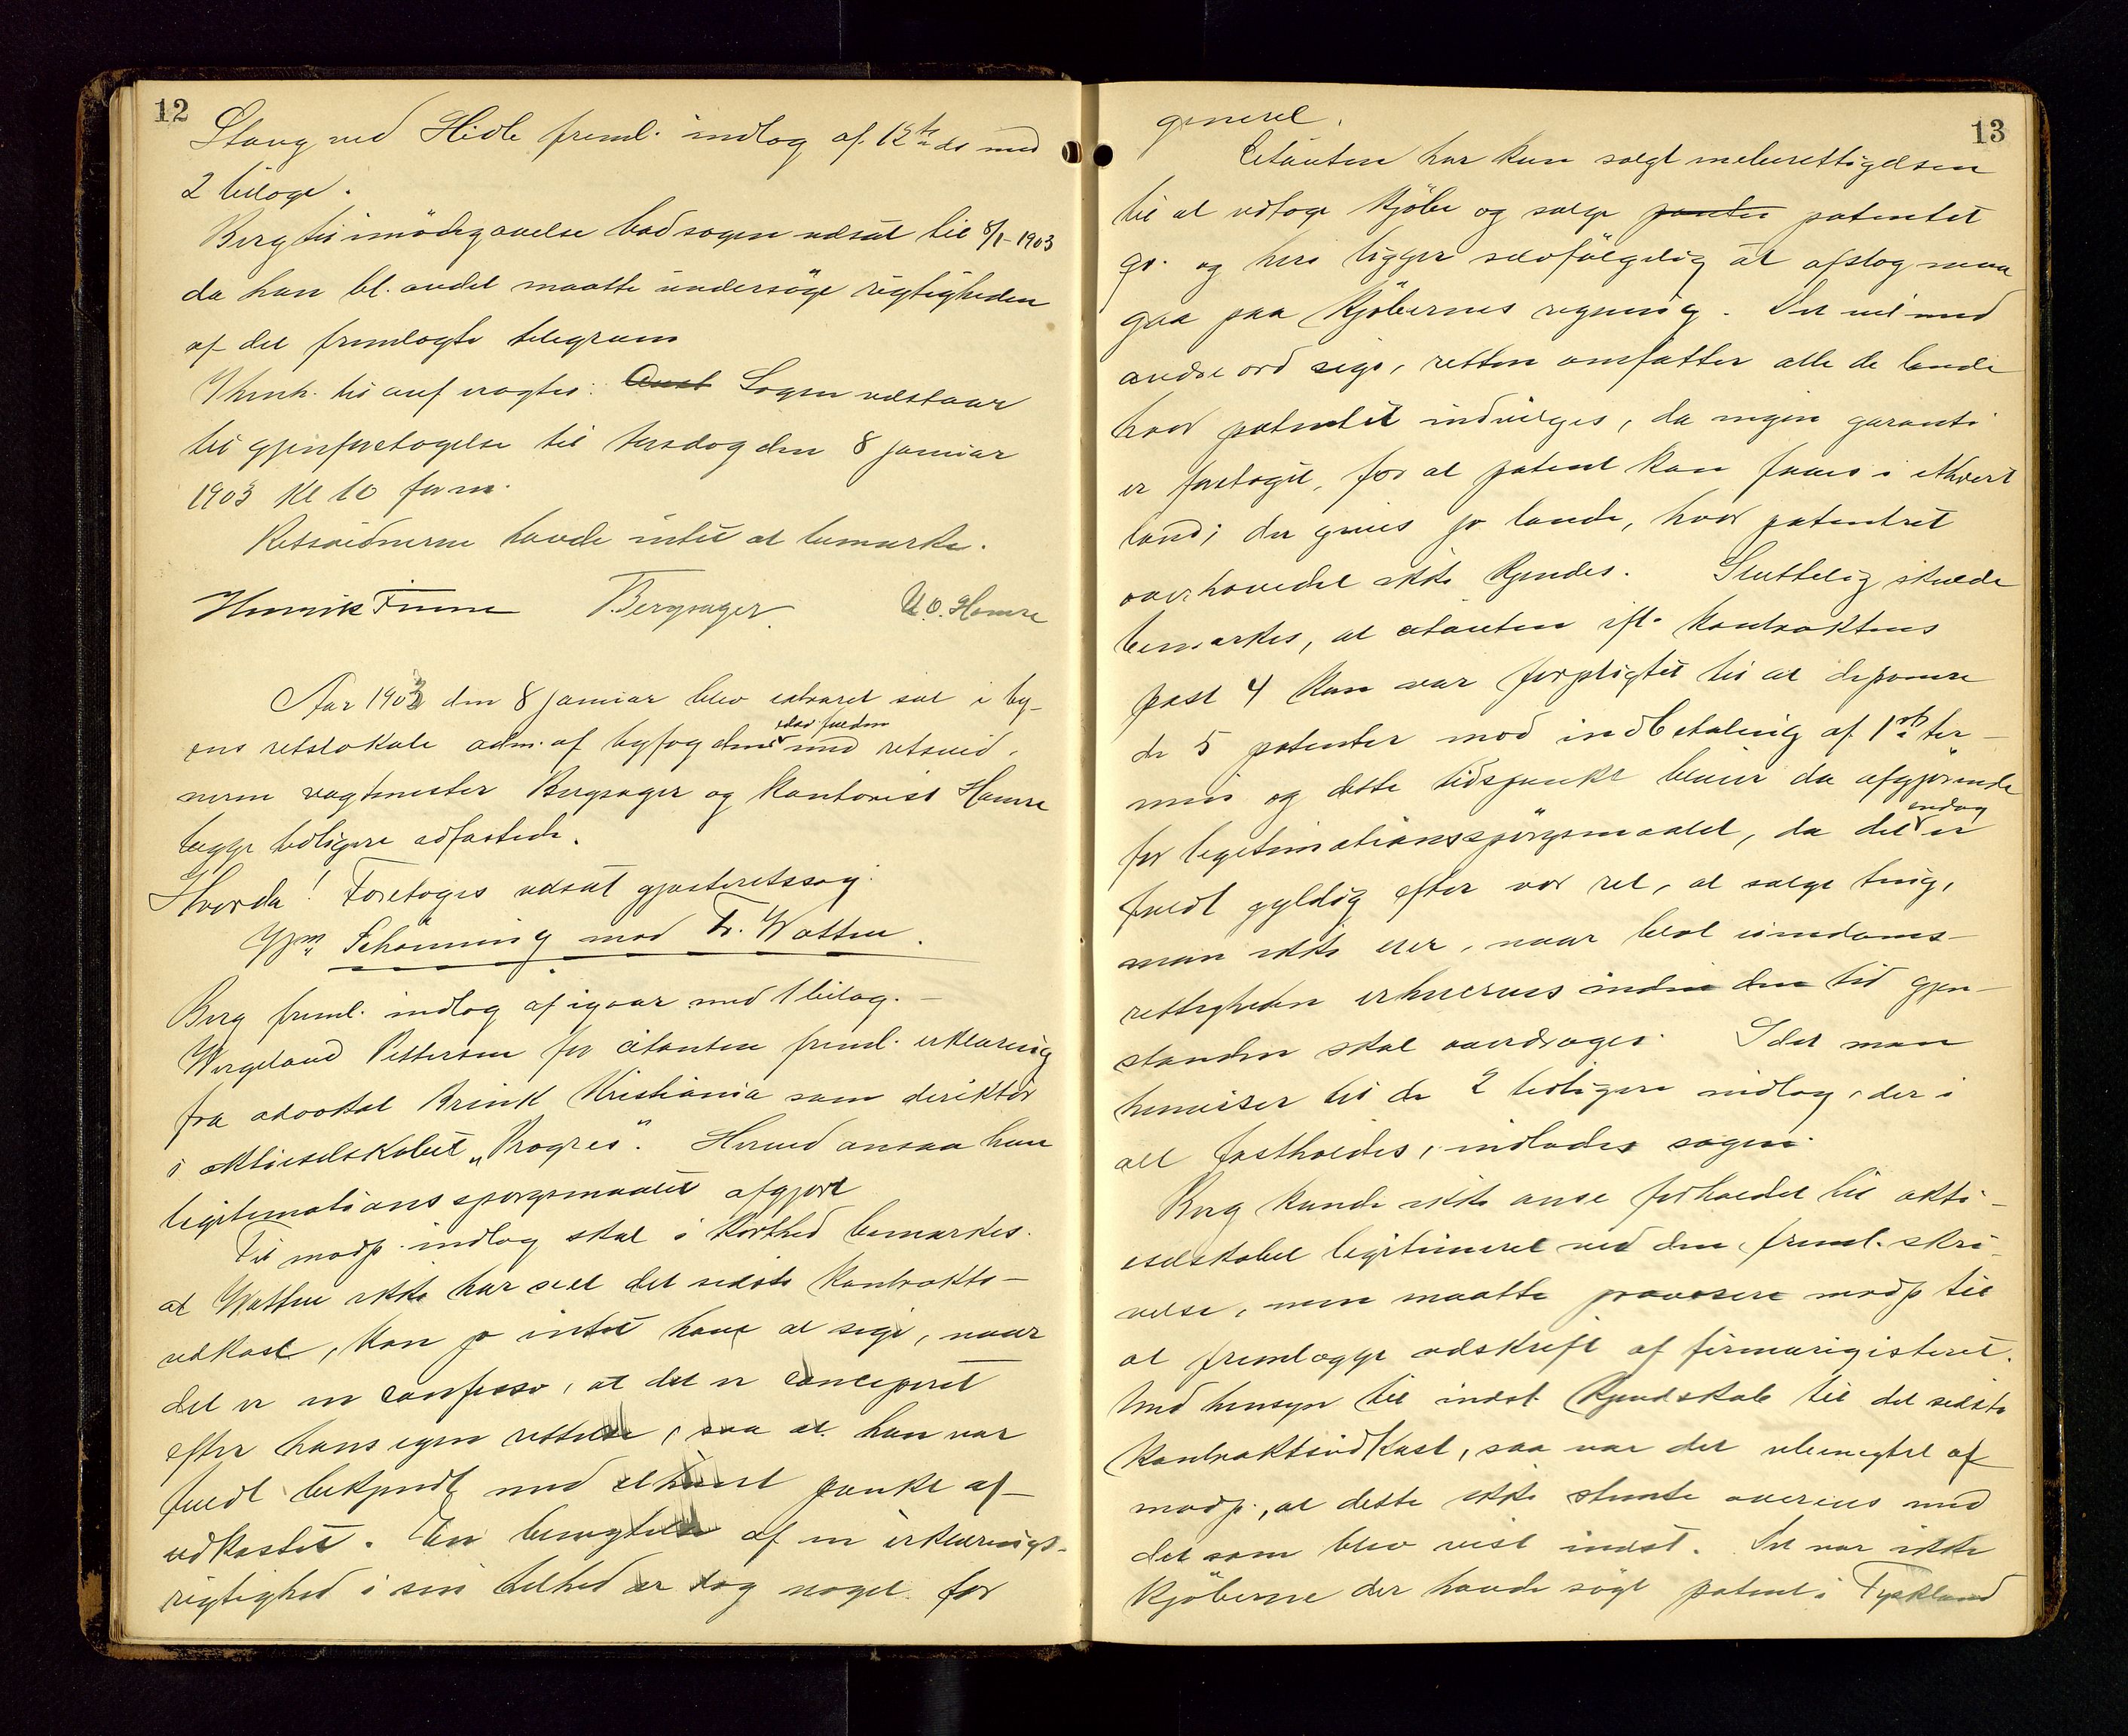 12
Stang ved Hidle freml. indlæg af 12te ds med
2 bilage.
Berg til imødegaaelse bad sagen udsat til 8/1-1903
da han bl. andet maatte undersøge rigtigheden
af det fremlagte telegram
Thinh. til auf eragtes: Sagen udstaar
til gjenforetagelse til torsdag den 8 januar
1903 kl 10 form.
Retsvidnerne havde intet at bemærke.
Henrik Finne Bergsager. U. O. Hamre
Aar 1903 den 8 januar blev extraret sat i by-
ens retslokale adm. af byfogden edsv. fuldm med retsvid-
nerne vagtmester Bergsager og kontorist Hamre
begge tidligere edfæstede.
Hvorda! Foretoges udsat gjesteretssag.
Gjm Schønning mod Fr. Watten.
Berg freml. indlæg af igaar med 1 bilag. —
Wergeland Pettersen for citanten freml. erklæring
fra advokat Brink Kristiania som direktør
i aktieselskabet „Progres“. Herved ansaa han
legitimationsspørgsmaalet afgjort
Til modp. indlæg skal i korthed bemærkes.
at Watten ikke har seet det sidste kontrakts-
udkast, kan jo intet have at sige, naar
det er in confesso, at det er conciperet
efter hans egen rettelse, saa at han var
fuldt bekjendt med ethvert punkt af
udkastet. En benægtelse af en erklærings-
rigtighed i sin helhed er dog noget for
13
generel.
Citanten har kun solgt meneretttigelsen
til at udtage kjøbe og sælge panter patentet
go. og heri ligger selvfølgelig at afslag maa
gaa paa kjøbernes regning. Det vil med
andre ord sige, retten omfatter alle de lande
hvor patentet indvilges, da ingen garanti
er foretaget, for at patent kan faaes i ethvert
land; der gives jo lande, hvor patentret
overhovedet ikke kjendes. Sluttelig skulde
bemærkes, at citanten ifl. kontraktens
post 4 kun var forpligtet til at deponere
de 5 patenter mod indbetaling af 1ste ter-
min og dette tidspunkt bliver da afgjørende
for legitimationsspørgsmaalet, da det endog er
fuldt gyldig efter vor ret, at sælge ting,
man ikke eier, naar blot eiendoms-
rettigheden erhverves inden den tid gjen-
standen skal overdrages. Idet man
henviser til de 2 tidligere indlæg, der i
alt fastholdes, indlades sagen.
Berg kunde ikke anse forholdet til akti-
eselskabet legitimeret ved den freml. skri-
velse, men maatte provosere modp til
at fremlægge udskrift af firmaregisteret.
Med hensyn til indst. kjendskab til det sidste
kontraktsudkast, saa var det ubenegtet af
modp., at dette ikke stemte overens med
det som blev vist indst. Det var ikke
kjøberne der havde søgt patent i Tyskland